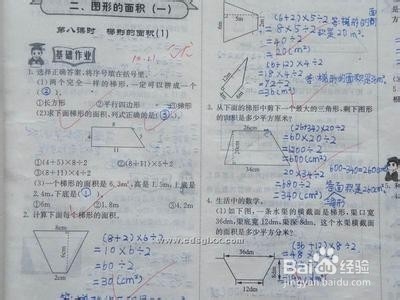 二、图形的面积(一)
第八课时 梯形的面积(1)
基础作业
10.21
1. 选择正确答案,将序号填在括号里。
(1)两个完全一样的梯形,一定可以拼成一个( ② )。
①长方形 ②平行四边形 ③梯形
(2)求下面梯形的面积,列式正确的是( ③ )。
4
8
11
①(4+5)×8÷2 ②(8+11)×5÷2
③(4+11)×5÷2
(3)一个梯形的面积是6.3m²,高是1.5m,上底是2.4m,下底是( ② )。
①6m ③4.2m
2. 计算下面每个梯形的面积。
8cm
6cm
2cm
(8+2)×6÷2
=10×6÷2
=60÷2
=30(cm²)
(6+2)×5÷2
=8×5÷2
=40÷2
=20(cm²)
(6+12)×4÷2
=18×4÷2
=72÷2
=36(cm²)
3. 从下面的梯形中剪下一个最大的三角形,剩下图形的面积是多少平方厘米?
26cm
20cm
34cm
(26+34)×20÷2
=60×20÷2
=1200÷2
=600(cm²)
34×20÷2
=680÷2
=340(cm²)
600-340=260(cm²)
4. 生活中的数学。
(1)如下图,一条水渠的横截面是梯形,渠口宽36dm,渠底宽12dm,渠深8dm。这个水渠横截面的面积是多少平方分米?
36dm
8dm
12dm
(36+12)×8÷2
www.cdsglxx.com
Baidu经验